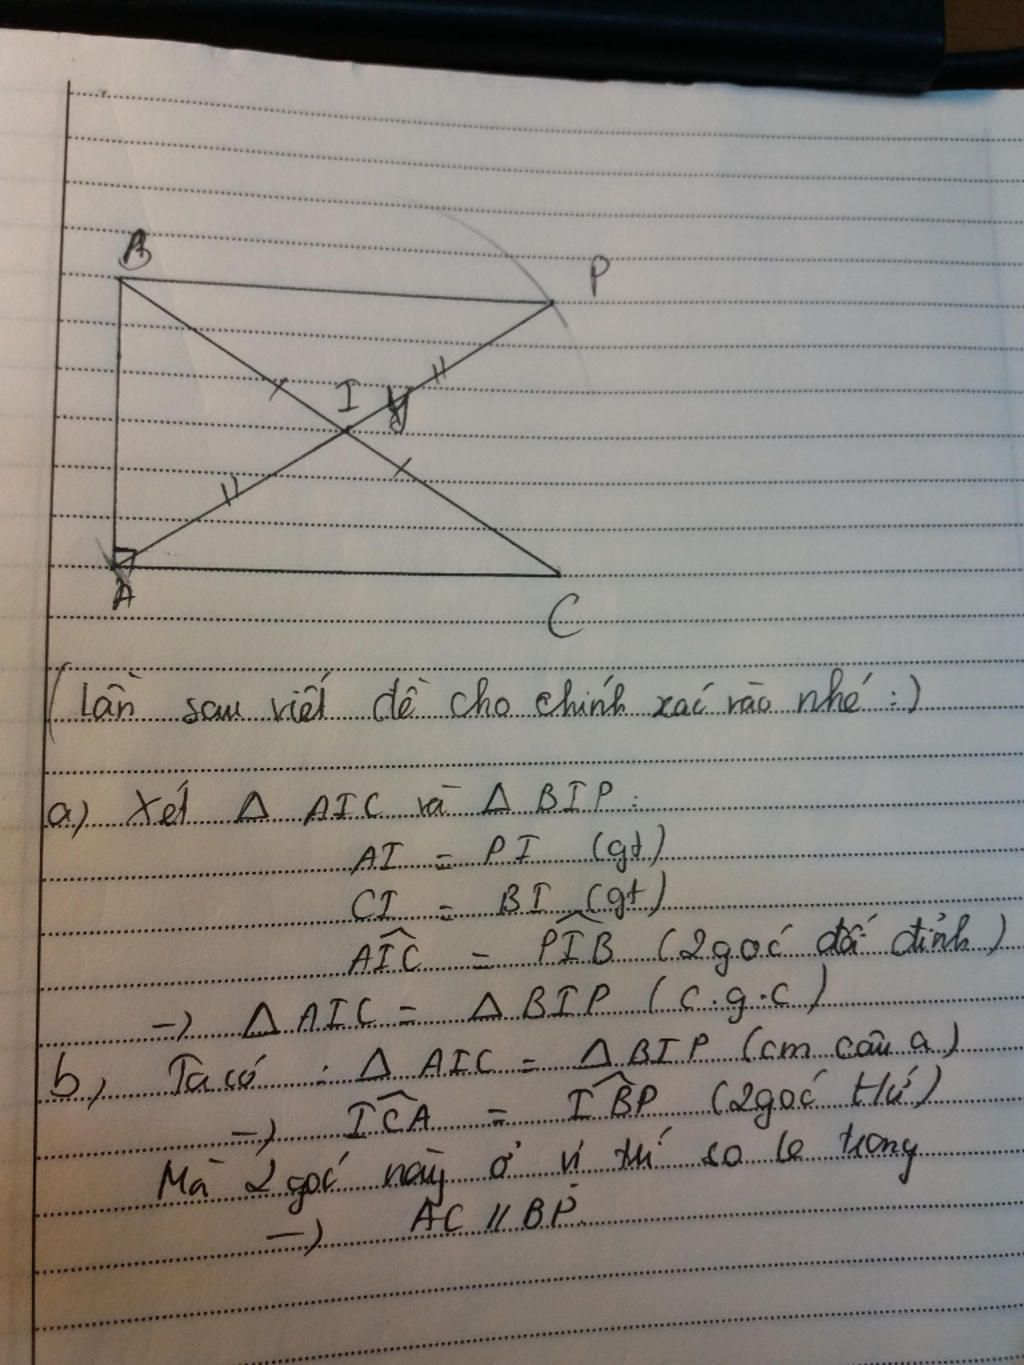 B
P
I
A
C
(lần sau viết đề cho chính xác vào nhé :)
a) Xét Δ AIC và Δ BIP :
AI = PI (gt)
CI = BI (gt)
AIC = PIB (2 góc đđ đỉnh)
-) Δ AIC = Δ BIP (c.g.c)
b) Ta có : Δ AIC = Δ BIP (cm câu a)
-) ICA = IBP (2 góc tứ)
Mà 2 góc này ở vị trí so le trong
-) AC // BP